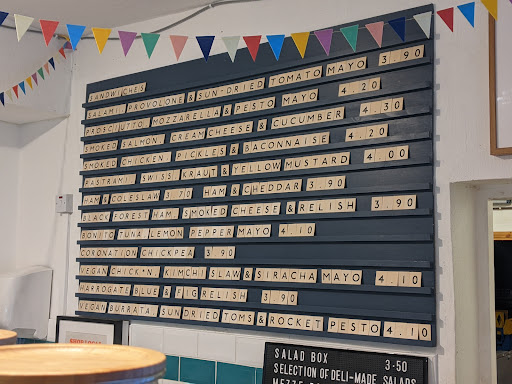 SANDWICHES
SALAMI PROVOLONE & SUN-DRIED TOMATO MAYO 3.90
PROSCIUTTO MOZZARELLA & PESTO MAYO 4.20
SMOKED SALMON CREAM CHEESE & CUCUMBER 4.30
SMOKED CHICKEN PICKLES & BACONNAISE 4.20
PASTRAMI SWISS KRAUT & YELLOW MUSTARD 4.00
HAM & COLESLAW 3.70 HAM & CHEDDAR 3.90
BLACK FOREST HAM SMOKED CHEESE & RELISH 3.90
BONITO TUNA LEMON PEPPER MAYO 4.10
CORONATION CHICKPEA 3.90
VEGAN CHICK'N KIMCHI SLAW & SIRACHA MAYO 4.10
HARROGATE BLUE & FIG RELISH 3.90
VEGAN BURRATA SUN DRIED TOMS & ROCKET PESTO 4.10
SALAD BOX 3.50
SELECTION OF DELI-MADE SALADS